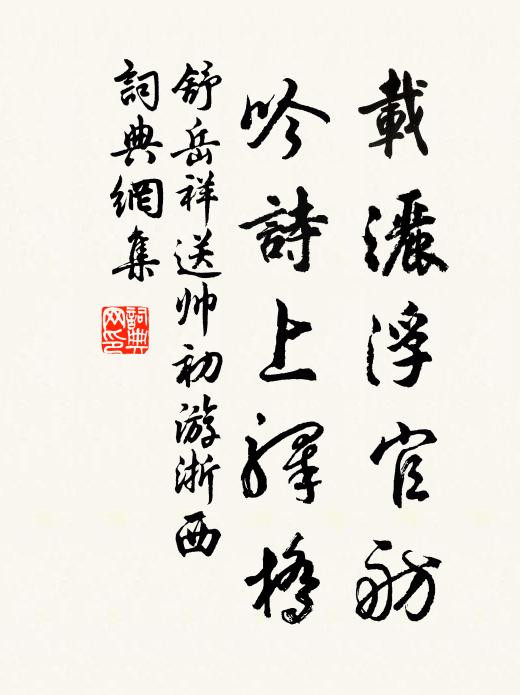 載灑浮官舫
吟詩上驛橋
舒岳祥送帅初游浙西
詞典網集
詞典网印